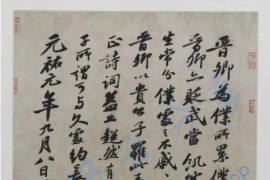 晉卿為僕所累僕
晉卿亦貶武當飢
生常分僕處之不戚
晉卿以貴公子罹此
正詩詞益工超然有
子所謂可与久處約長
元祐元年九月八日